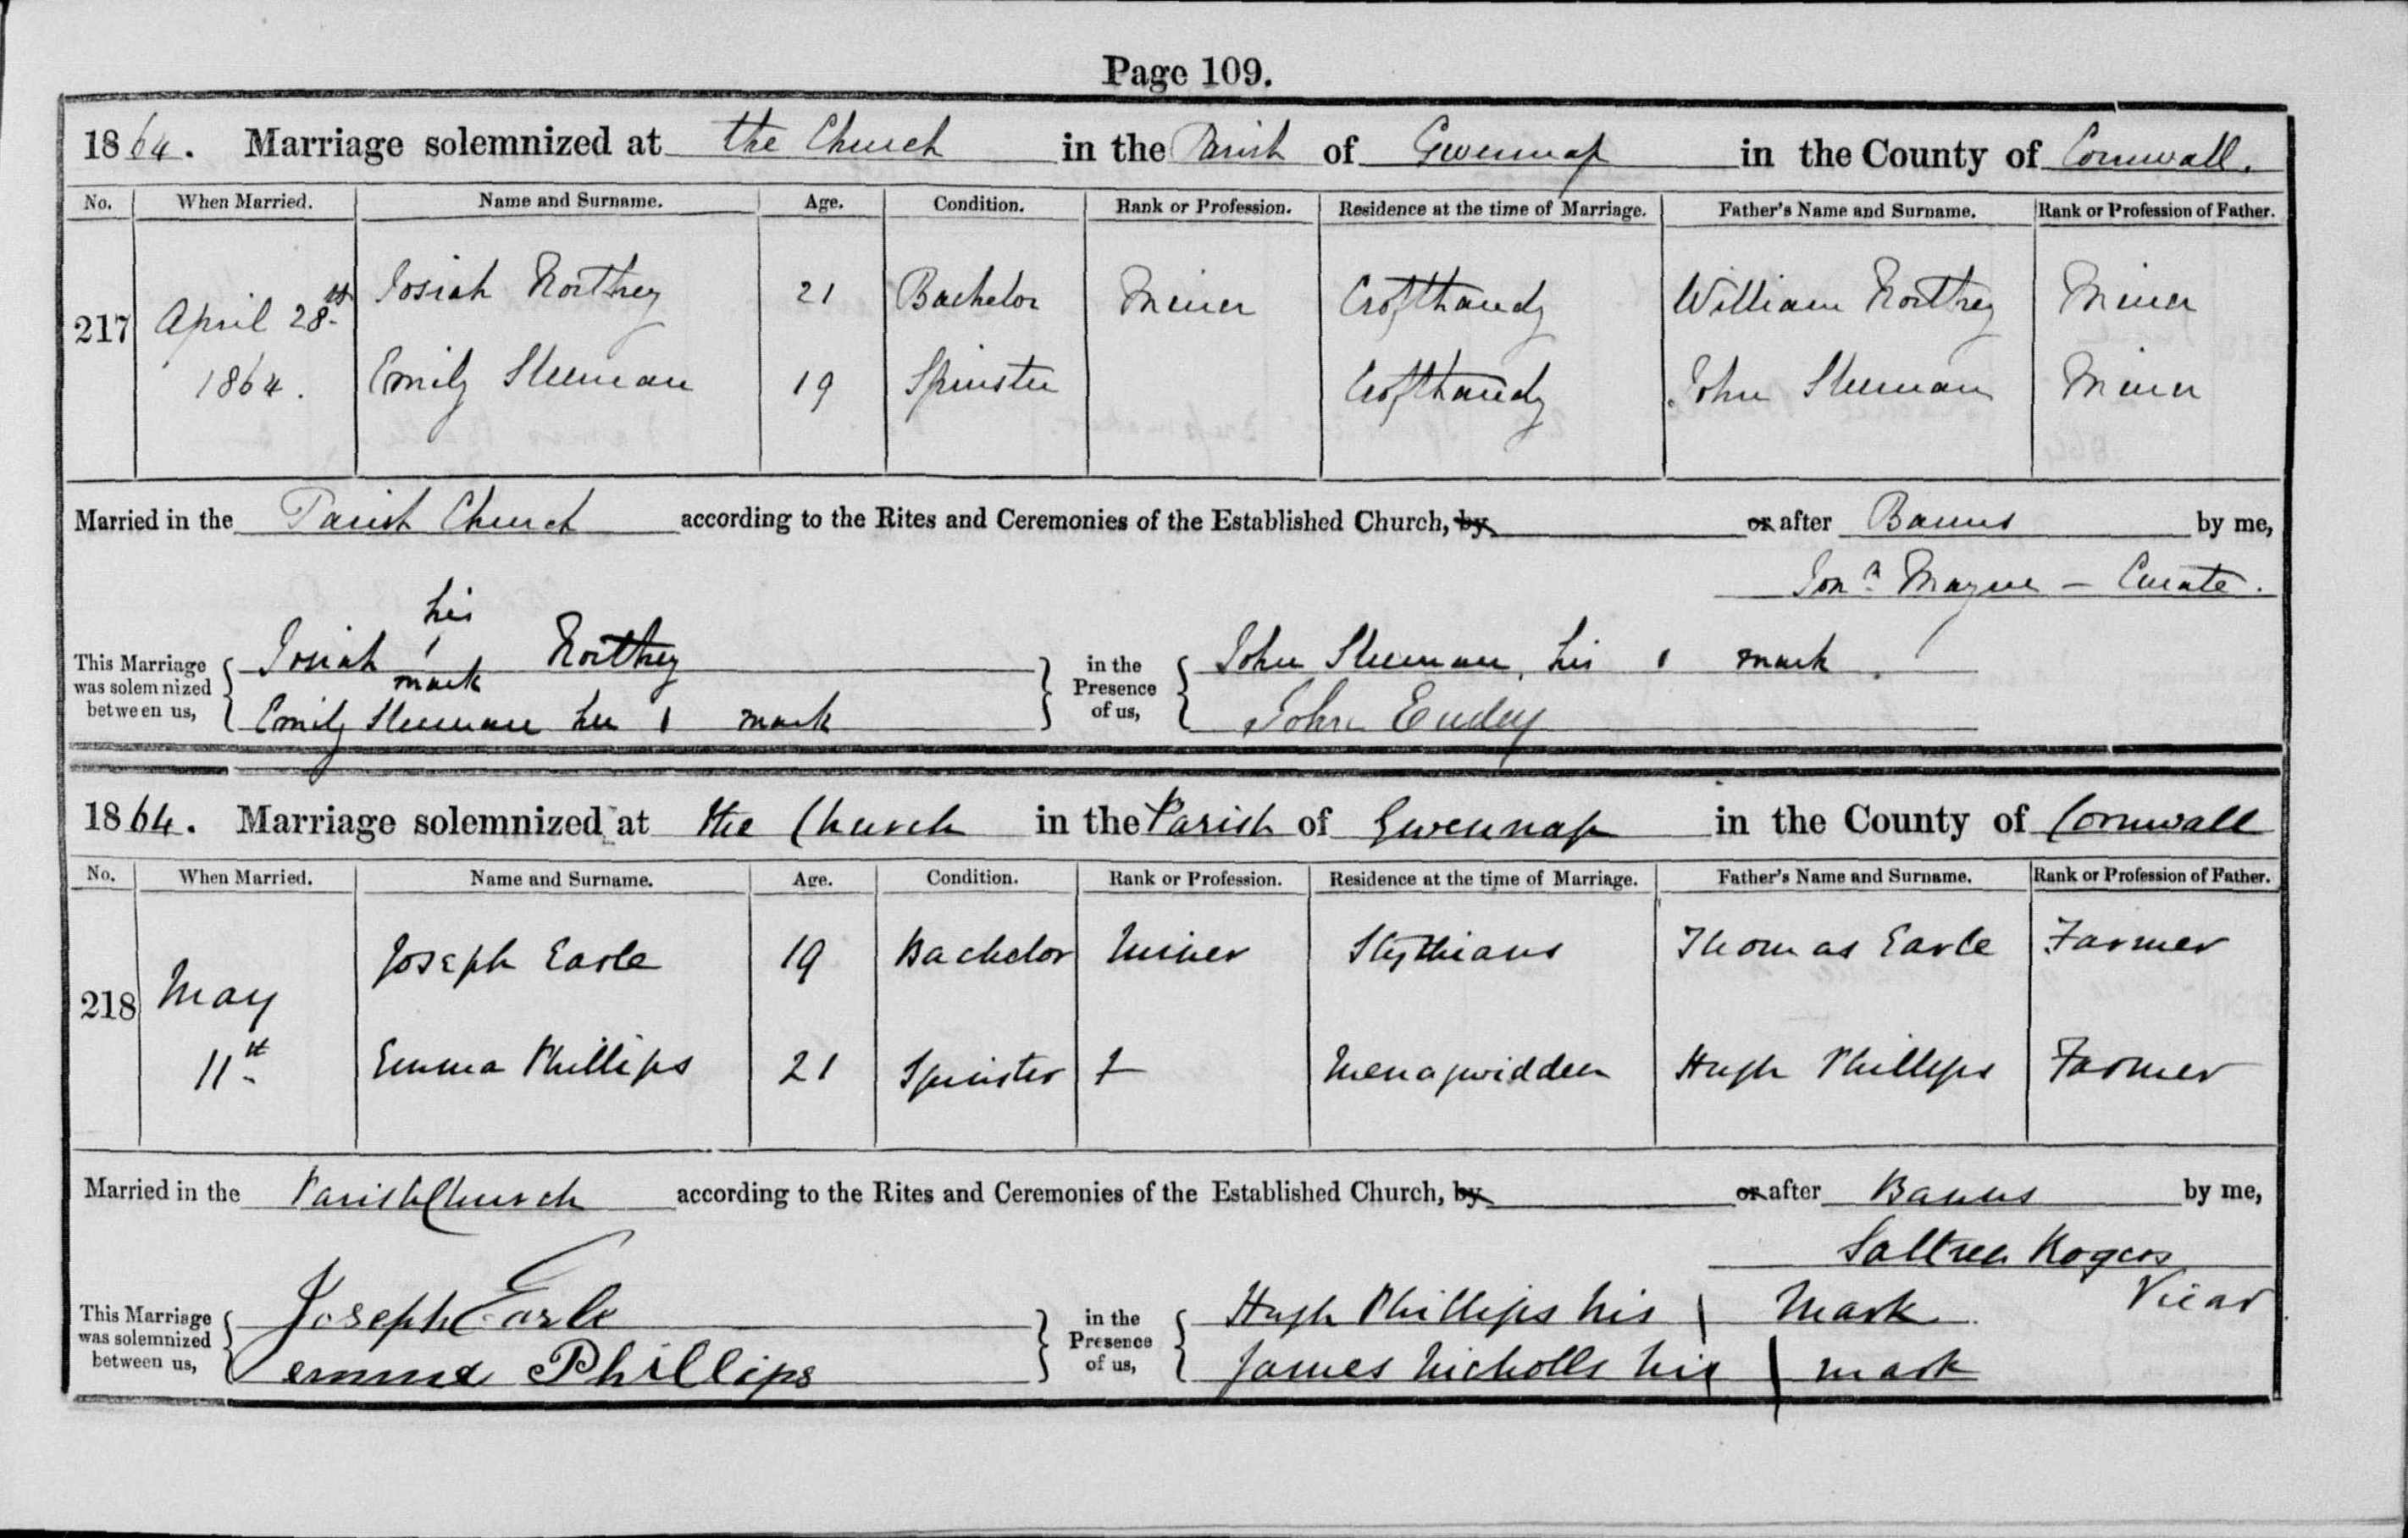 Page 109.
1864. Marriage solemnized at the Church in the Parish of Gwennap in the County of Cornwall.
No. When Married. Name and Surname. Age. Condition. Rank or Profession. Residence at the time of Marriage. Father's Name and Surname. Rank or Profession of Father.
217 April 28th Josiah Northey 21 Bachelor Miner Crofthandy William Northey Miner
1864. Emily Sleeman 19 Spinster Crofthandy John Sleeman Miner
Married in the Parish Church according to the Rites and Ceremonies of the Established Church, by or after Banns by me,
Jon.n Mayne - Curate.
his
This Marriage was solemnized between us, Josiah Northey in the Presence of us, John Sleeman, his mark.
mark
Emily Sleeman her mark John Eudey
1864. Marriage solemnized at the Church in the Parish of Gwennap in the County of Cornwall
No. When Married. Name and Surname. Age. Condition. Rank or Profession. Residence at the time of Marriage. Father's Name and Surname. Rank or Profession of Father.
218 May Joseph Earle 19 Bachelor Miner Stythians Thomas Earle Farmer
11th Emma Phillips 21 Spinster Menagwidden Hugh Phillips Farmer
Married in the Parish Church according to the Rites and Ceremonies of the Established Church, by or after Banns by me,
Saltren Rogers
Vicar
This Marriage was solemnized between us, Joseph Earle in the Presence of us, Hugh Phillips his Mark
emma Phillips James Nicholls his mark